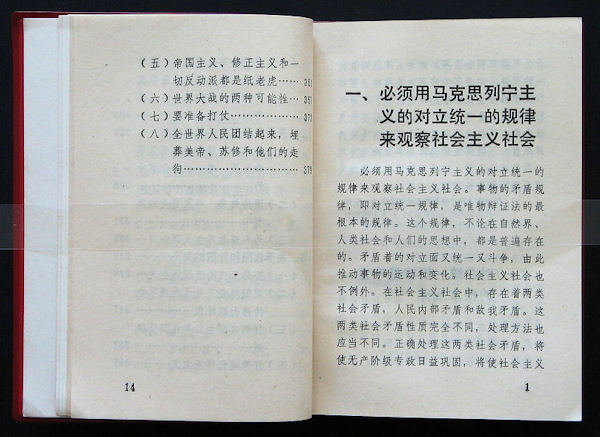 (五) 帝国主义、修正主义和一
切反动派都是纸老虎…… 361
(六) 世界大战的两种可能性… 367
(七) 要准备打仗………………
(八) 全世界人民团结起来，埋
葬美帝、苏修和他们的走
狗………………………… 379
14
一、必须用马克思列宁主
义的对立统一的规律
来观察社会主义社会
必须用马克思列宁主义的对立统一的
规律来观察社会主义社会。事物的矛盾规
律，即对立统一规律，是唯物辩证法的最
根本的规律。这个规律，不论在自然界、
人类社会和人们的思想中，都是普遍存在
的。矛盾着的对立面又统一又斗争，由此
推动事物的运动和变化。社会主义社会也
不例外。在社会主义社会中，存在着两类
社会矛盾，人民内部矛盾和敌我矛盾。这
两类社会矛盾性质完全不同，处理方法也
应当不同。正确处理这两类社会矛盾，将
使无产阶级专政日益巩固，将使社会主义
1